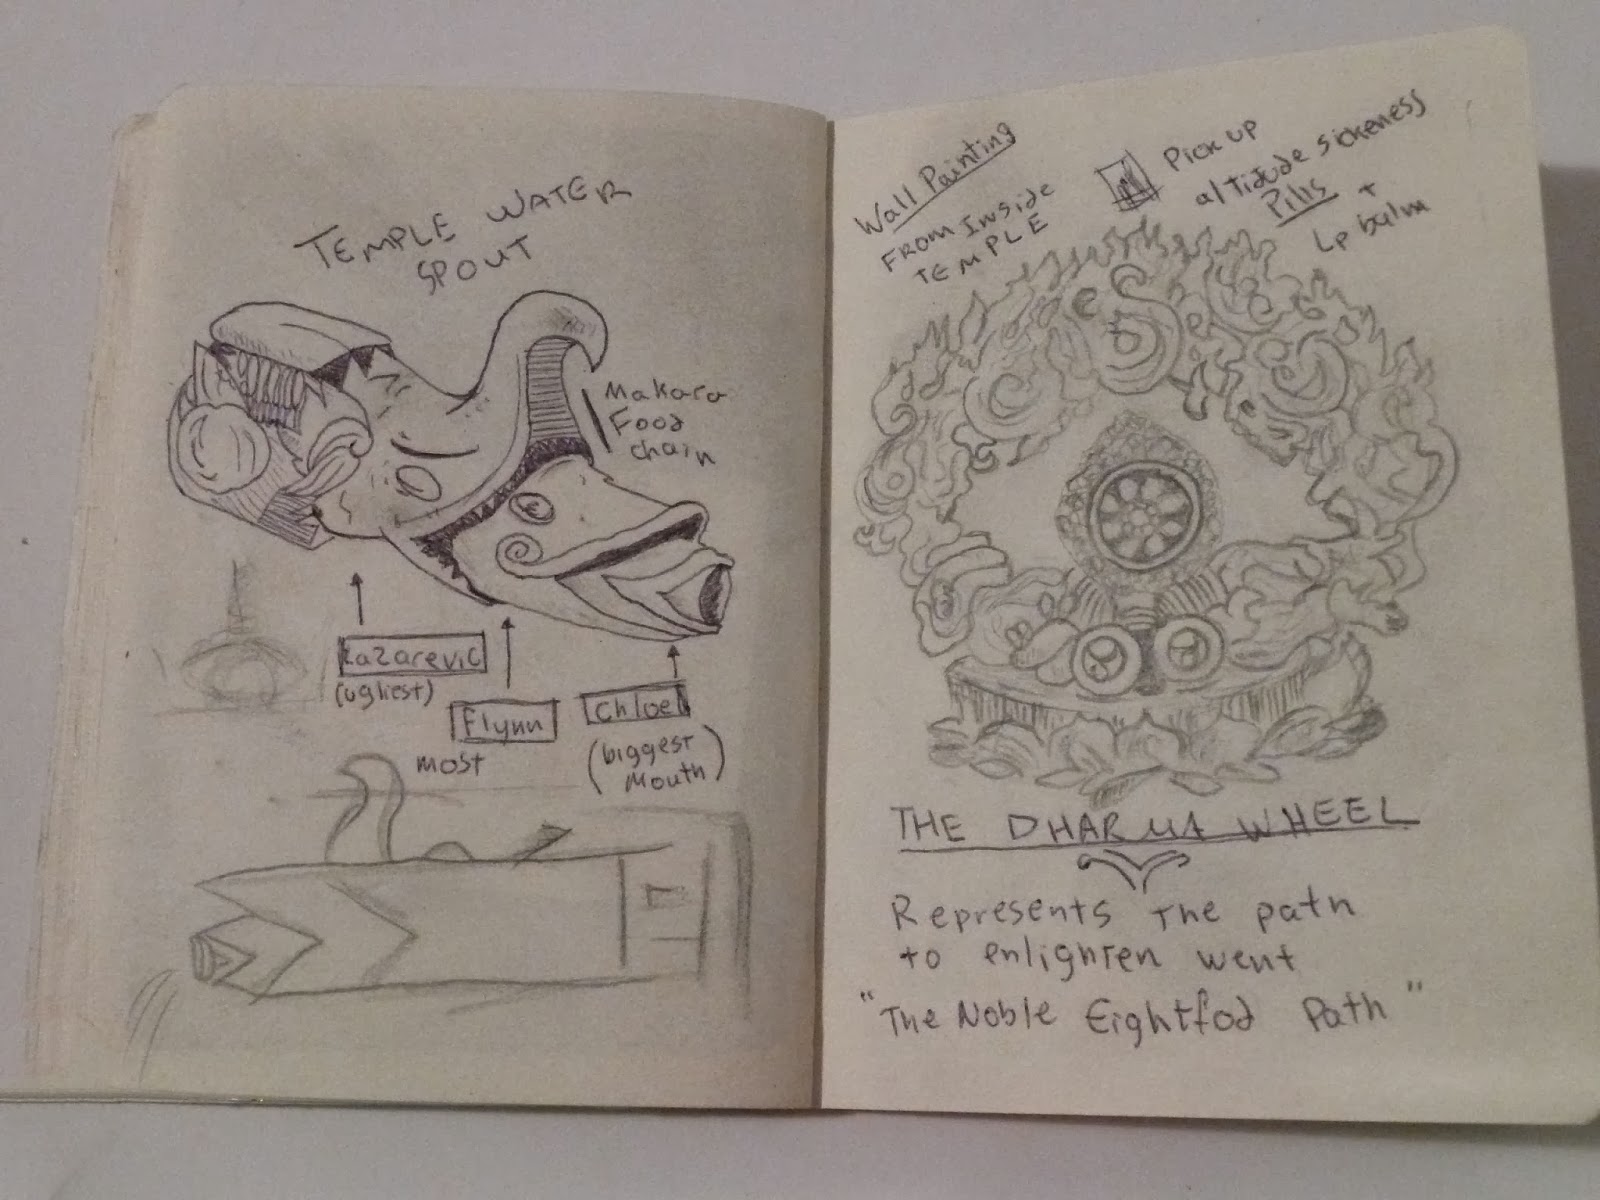 TEMPLE WATER
SPOUT
Makara
Food
chain
Lazarevic
(ugliest)
Flynn
most
Chloe
(biggest
Mouth)
Wall Painting
FROM INSide
TEMPLE
Pick up
altidude sickeness
Pills +
Lp balm
THE DHARMA WHEEL
Represents The path
to enlighten went
"The Noble Eightfod Path"